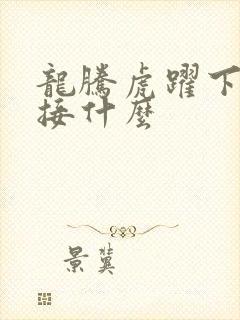 龍騰虎躍下
接什麼
景冀